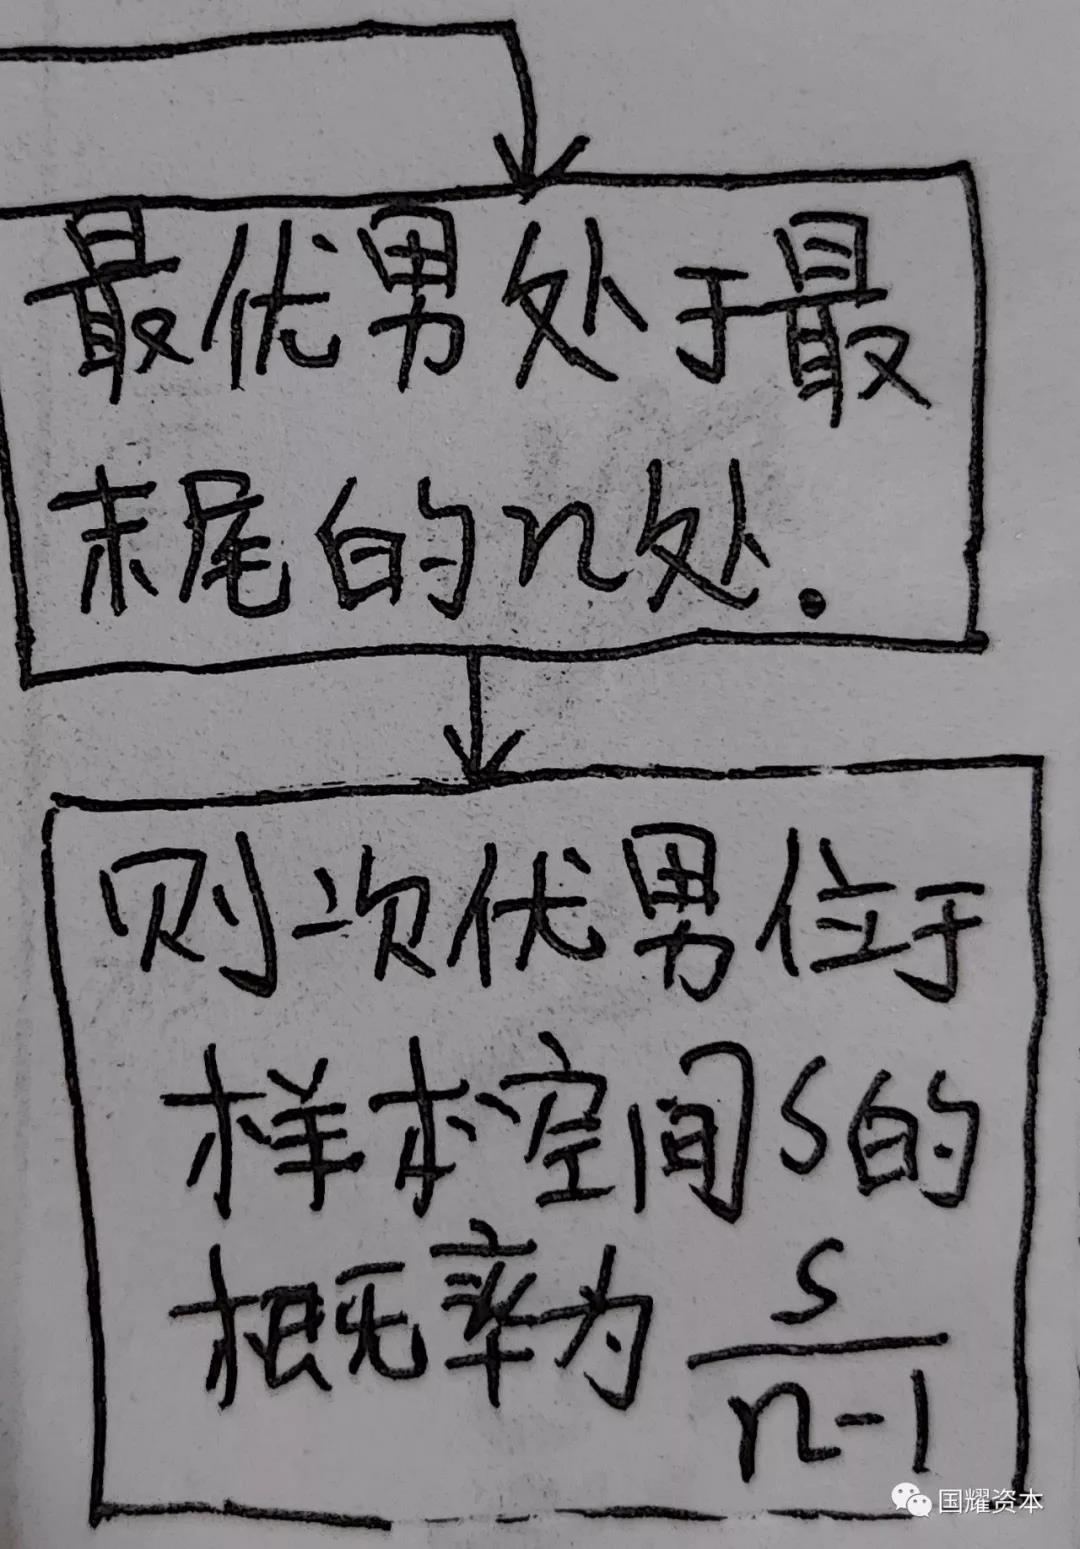 最优男处于最
末尾的n处.
则次优男位于
样本空间S的
概率为 S/n-1
国耀资本